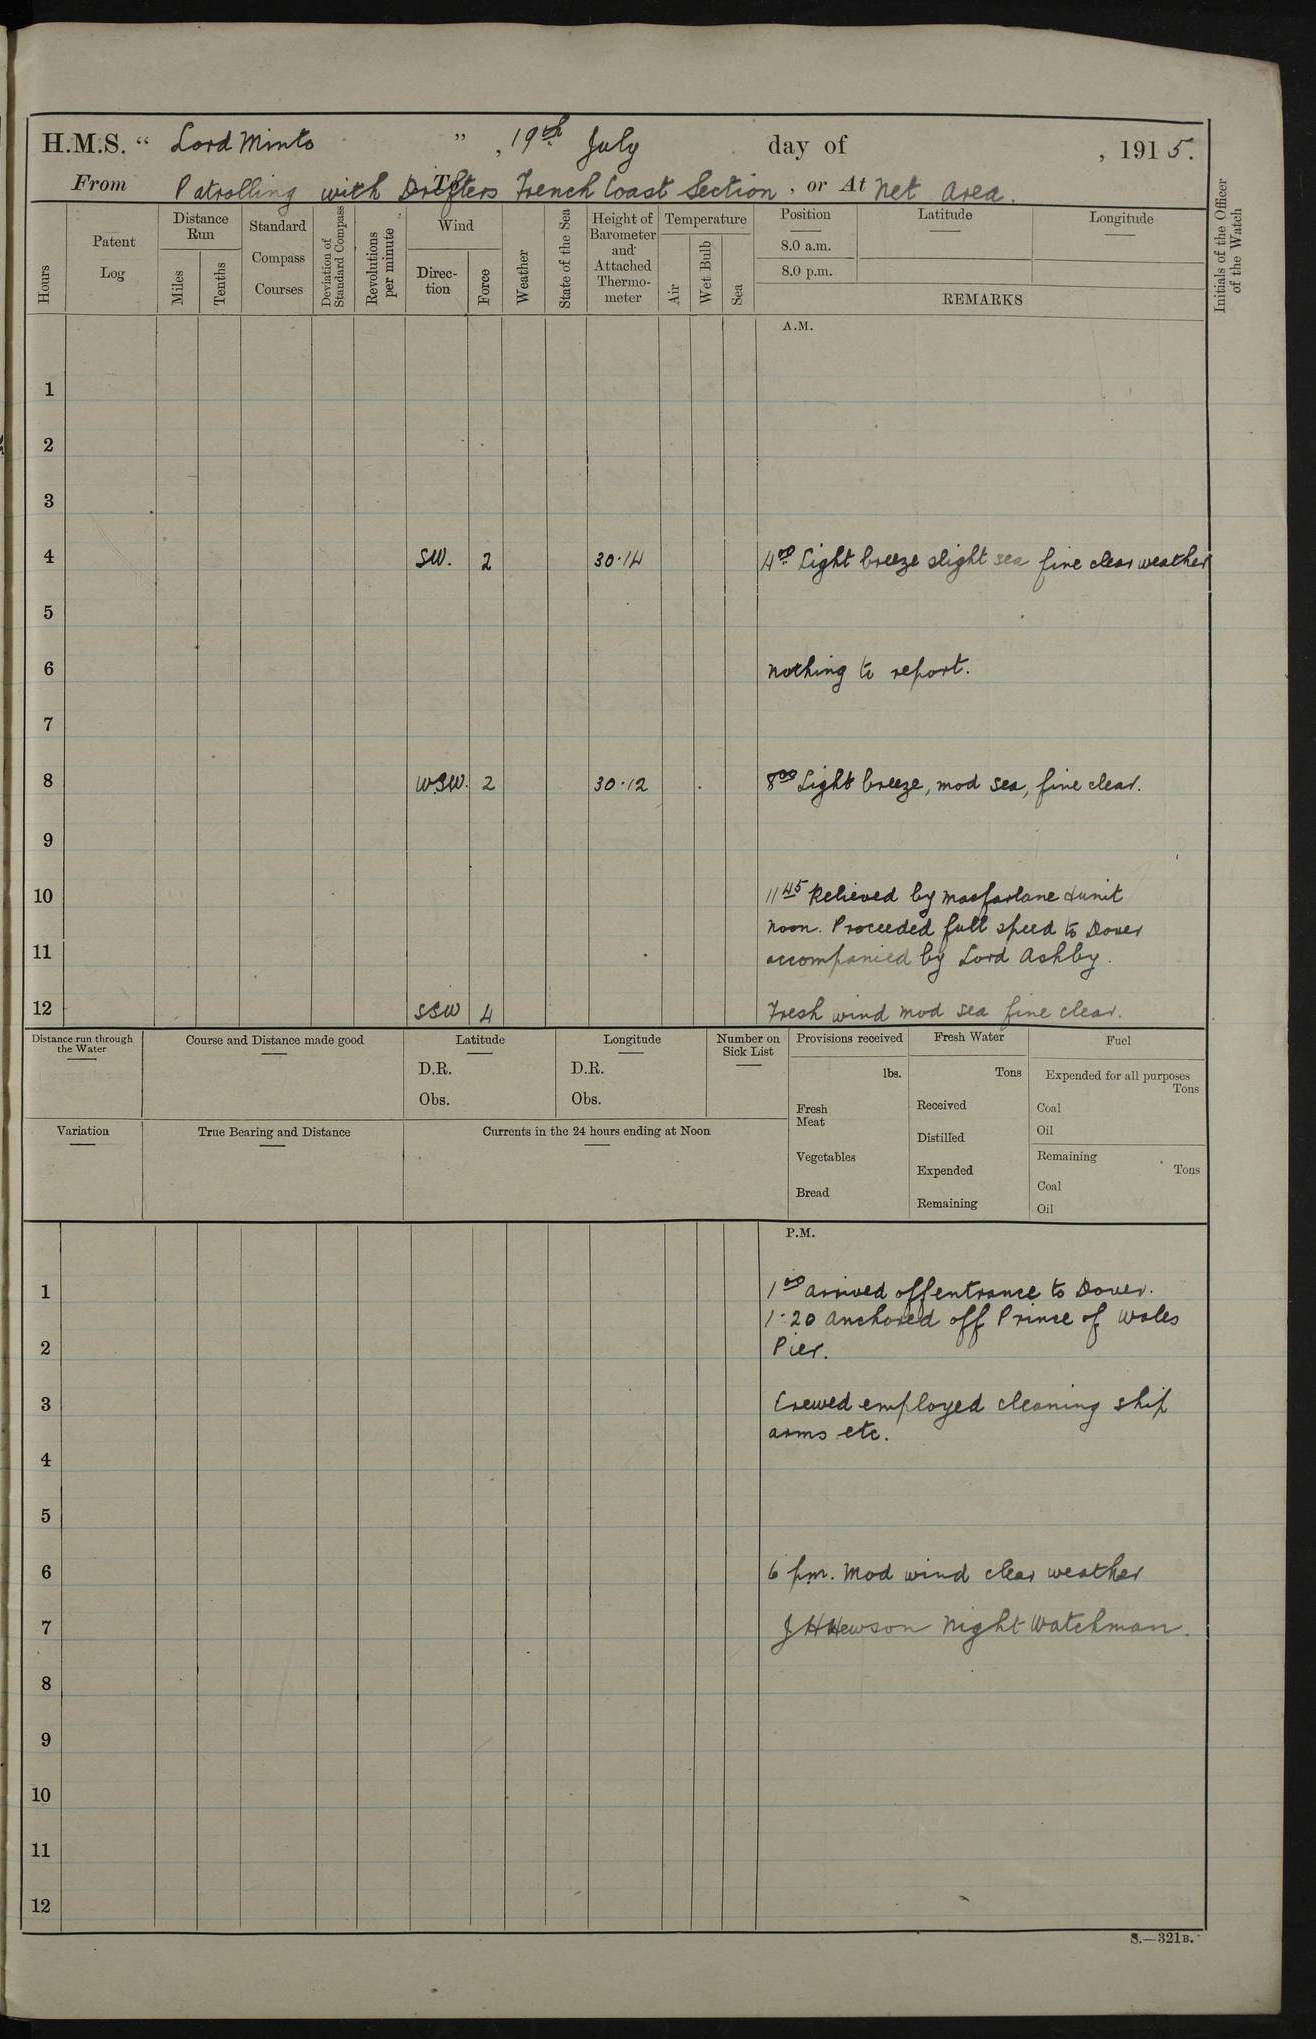 H.M.S. “ Lord Minto ” , 19th July day of , 1915.
From Patrolling with Drifters French Coast Section , or At Net Area.
Hours
Patent Log
Distance Run
Miles
Tenths
Standard Compass Courses
Deviation of Standard Compass
Revolutions per minute
Wind
Direc-tion
Force
Weather
State of the Sea
Height of Barometer and Attached Thermo-meter
Temperature
Air
Wet Bulb
Sea
Position
8.0 a.m.
8.0 p.m.
Latitude
Longitude
REMARKS
Initials of the Officer of the Watch
A.M.
1
2
3
4 SW. 2 30.14 4.00 Light breeze slight sea fine clear weather
5
6 nothing to report.
7
8 WSW. 2 30.12 8.00 Light breeze, mod sea, fine clear.
9
10 11.45 Relieved by Macfarlane & unit
noon. Proceeded full speed to Dover
11 accompanied by Lord Ashby.
12 SSW 4 Fresh wind mod sea fine clear.
Distance run through the Water
Course and Distance made good
Latitude
D.R.
Obs.
Longitude
D.R.
Obs.
Number on Sick List
Provisions received
lbs.
Fresh Meat
Vegetables
Bread
Fresh Water
Tons
Received
Distilled
Expended
Remaining
Fuel
Expended for all purposes
Tons
Coal
Oil
Remaining
Tons
Coal
Oil
Variation
True Bearing and Distance
Currents in the 24 hours ending at Noon
P.M.
1 1.00 arrived off entrance to Dover.
1.20 anchored off Prince of Wales
2 Pier.
3 Crewed employed cleaning ship
arms etc.
4
5
6 6 pm. Mod wind clear weather
7 J H Hewson Night Watchman.
8
9
10
11
12
S.—321B.